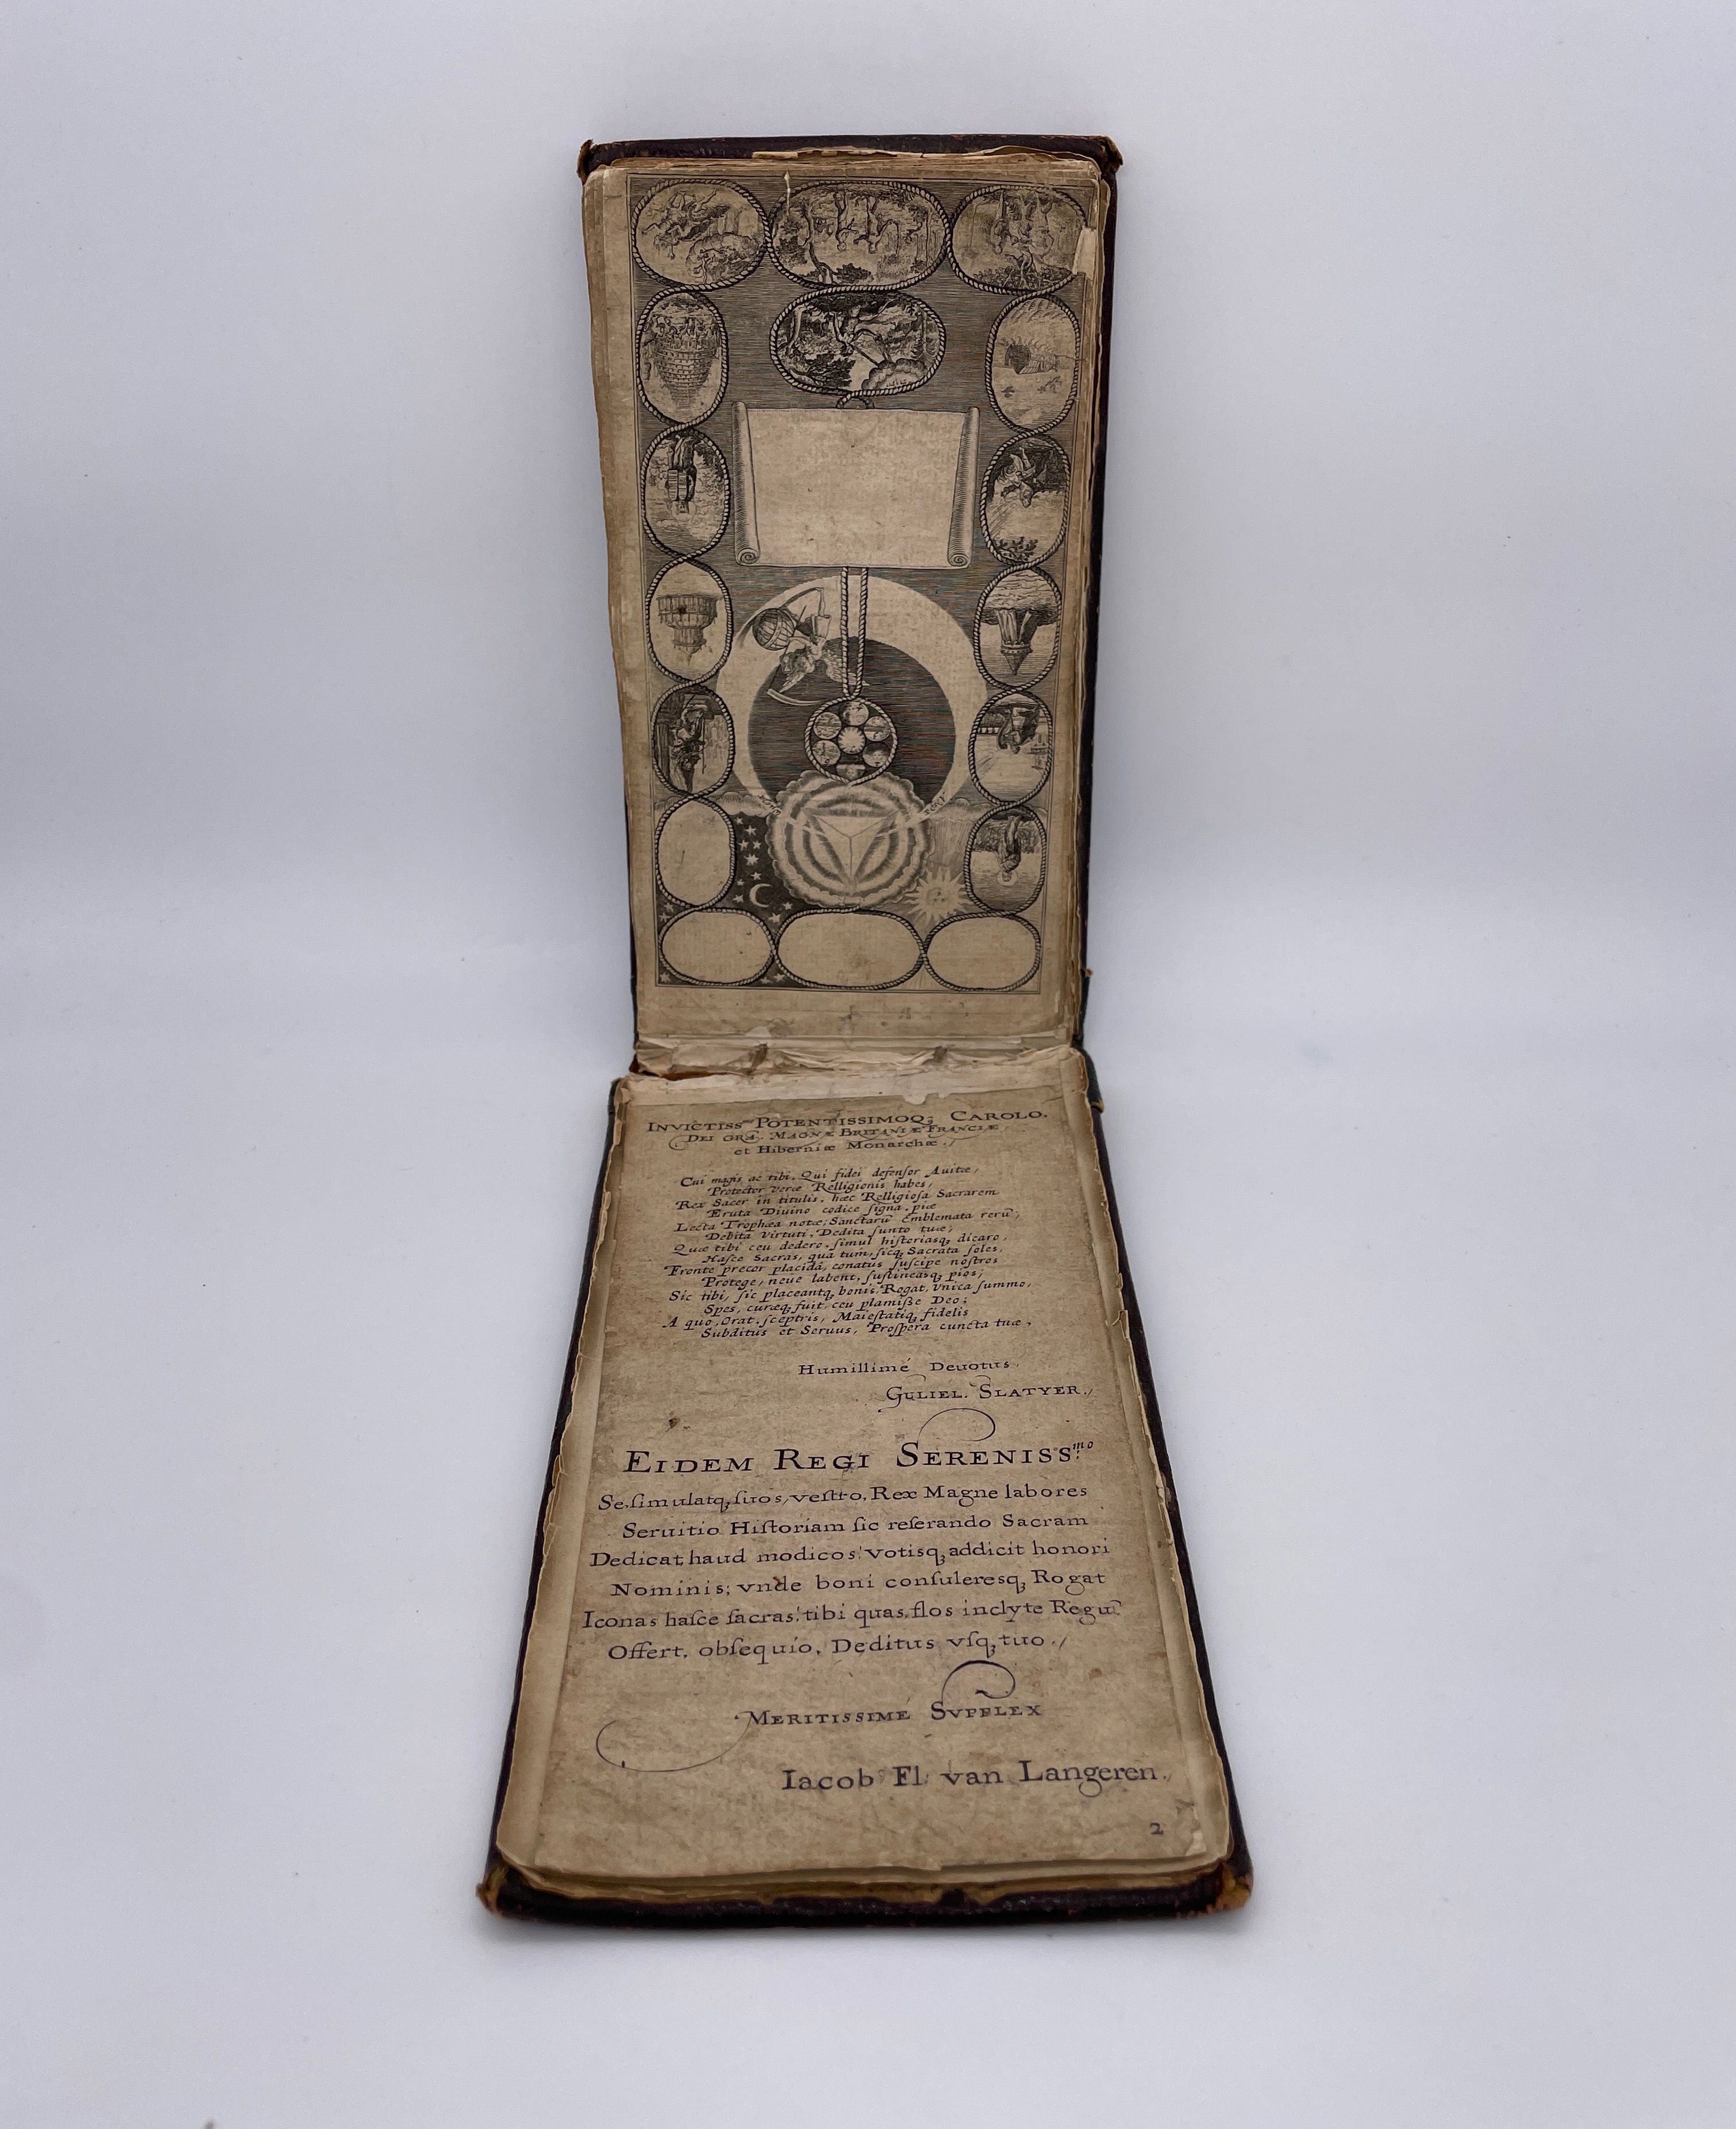 INVICTISSmo POTENTISSIMOQ; CAROLO.
DEI GRA. MAGNÆ BRITANIÆ FRANCIÆ
et Hiberniæ Monarchæ./
Cui magis ac tibi, Qui fidei defensor Avitæ,
Protector veræ Relligionis habes,
Rex Sacer in titulis, hæc Relligiosa Sacrarem
Eruta Divino codice signa, piæ
Lecta Trophæa notæ; Sanctarū Emblemata rerū,
Debita virtuti, Dedita sunto tuæ;
Quæ tibi ceu dedero, simul historiasq, dicaro,
Hasce Sacras, qua tum, sicq, Sacrata soles,
Fronte precor placidâ, conatus suscipe nostros
Protege, neue labent, sustineasq, pios;
Sic tibi, sic placeantq, bonis, Rogat, vnica summo,
Spes, curæq, fuit, ceu plamisse Deo;
A quo, Orat, sceptris, Maiestatiq, fidelis
Subditus et Seruus, Prospera cuncta tuæ,
Humillimé Deuotus
GULIEL. SLATYER./
EIDEM REGI SERENISS.mo
Se, simulatq, suos, vestro, Rex Magne labores
Seruitio Historiam sic reserando Sacram
Dedicat haud modicos! Votisq, addicit honori
Nominis; vnde boni consuleresq, Rogat
Iconas hasce sacras! tibi quas, flos inclyte Regū
Offert, obsequio, Deditus vsq, tuo./
MERITISSIMÉ SVPPLEX
Iacob Fl van Langeren.
2